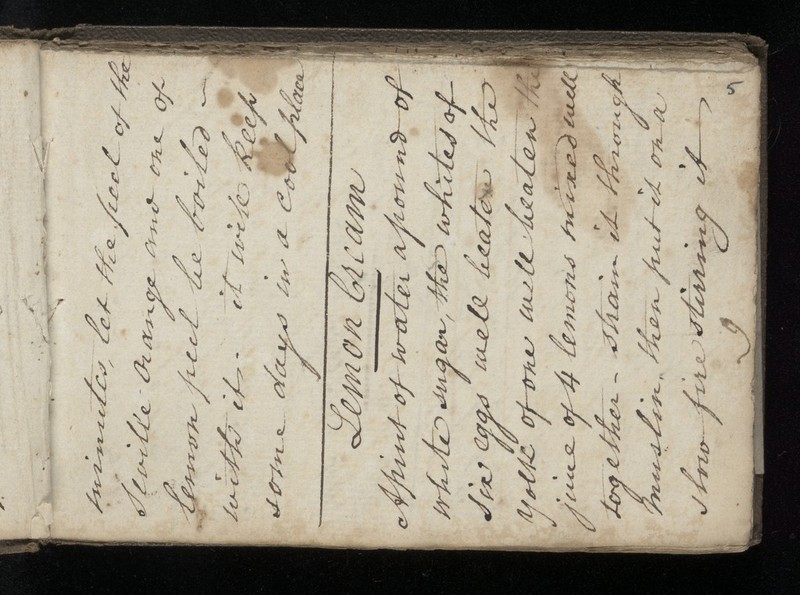 minutes, let the peel of the
Seville Orange and one of
lemon peel be boiled
with it - it will keep
some days in a cool place
Lemon Cream
A pint of water a pound of
white sugar, the whites of
six eggs well beaten the
Yolk of one well beaten the
juice of 4 lemons mixed well
together - strain it through
muslin, then put it on a
slow fire stirring it
9
5